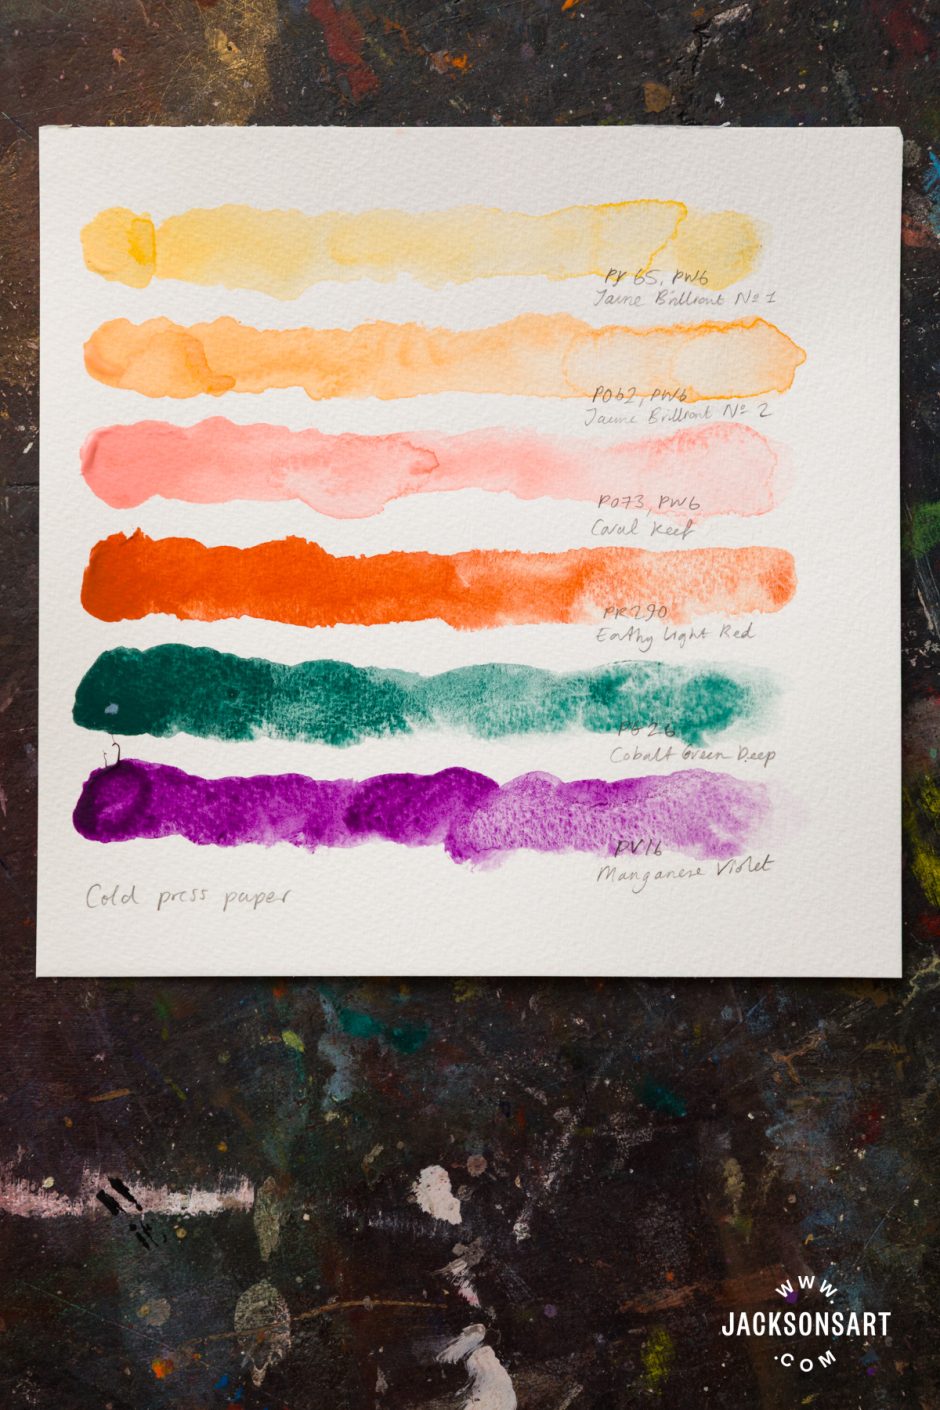 PY 65, PW6
Jaune Brillant Nº 1
PO62, PW6
Jaune Brillant Nº 2
PO73, PW6
Coral Reef
PR290
Earthy Light Red
PG26
Cobalt Green Deep
PV16
Manganese Violet
Cold press paper
WWW.
JACKSONSART
.COM